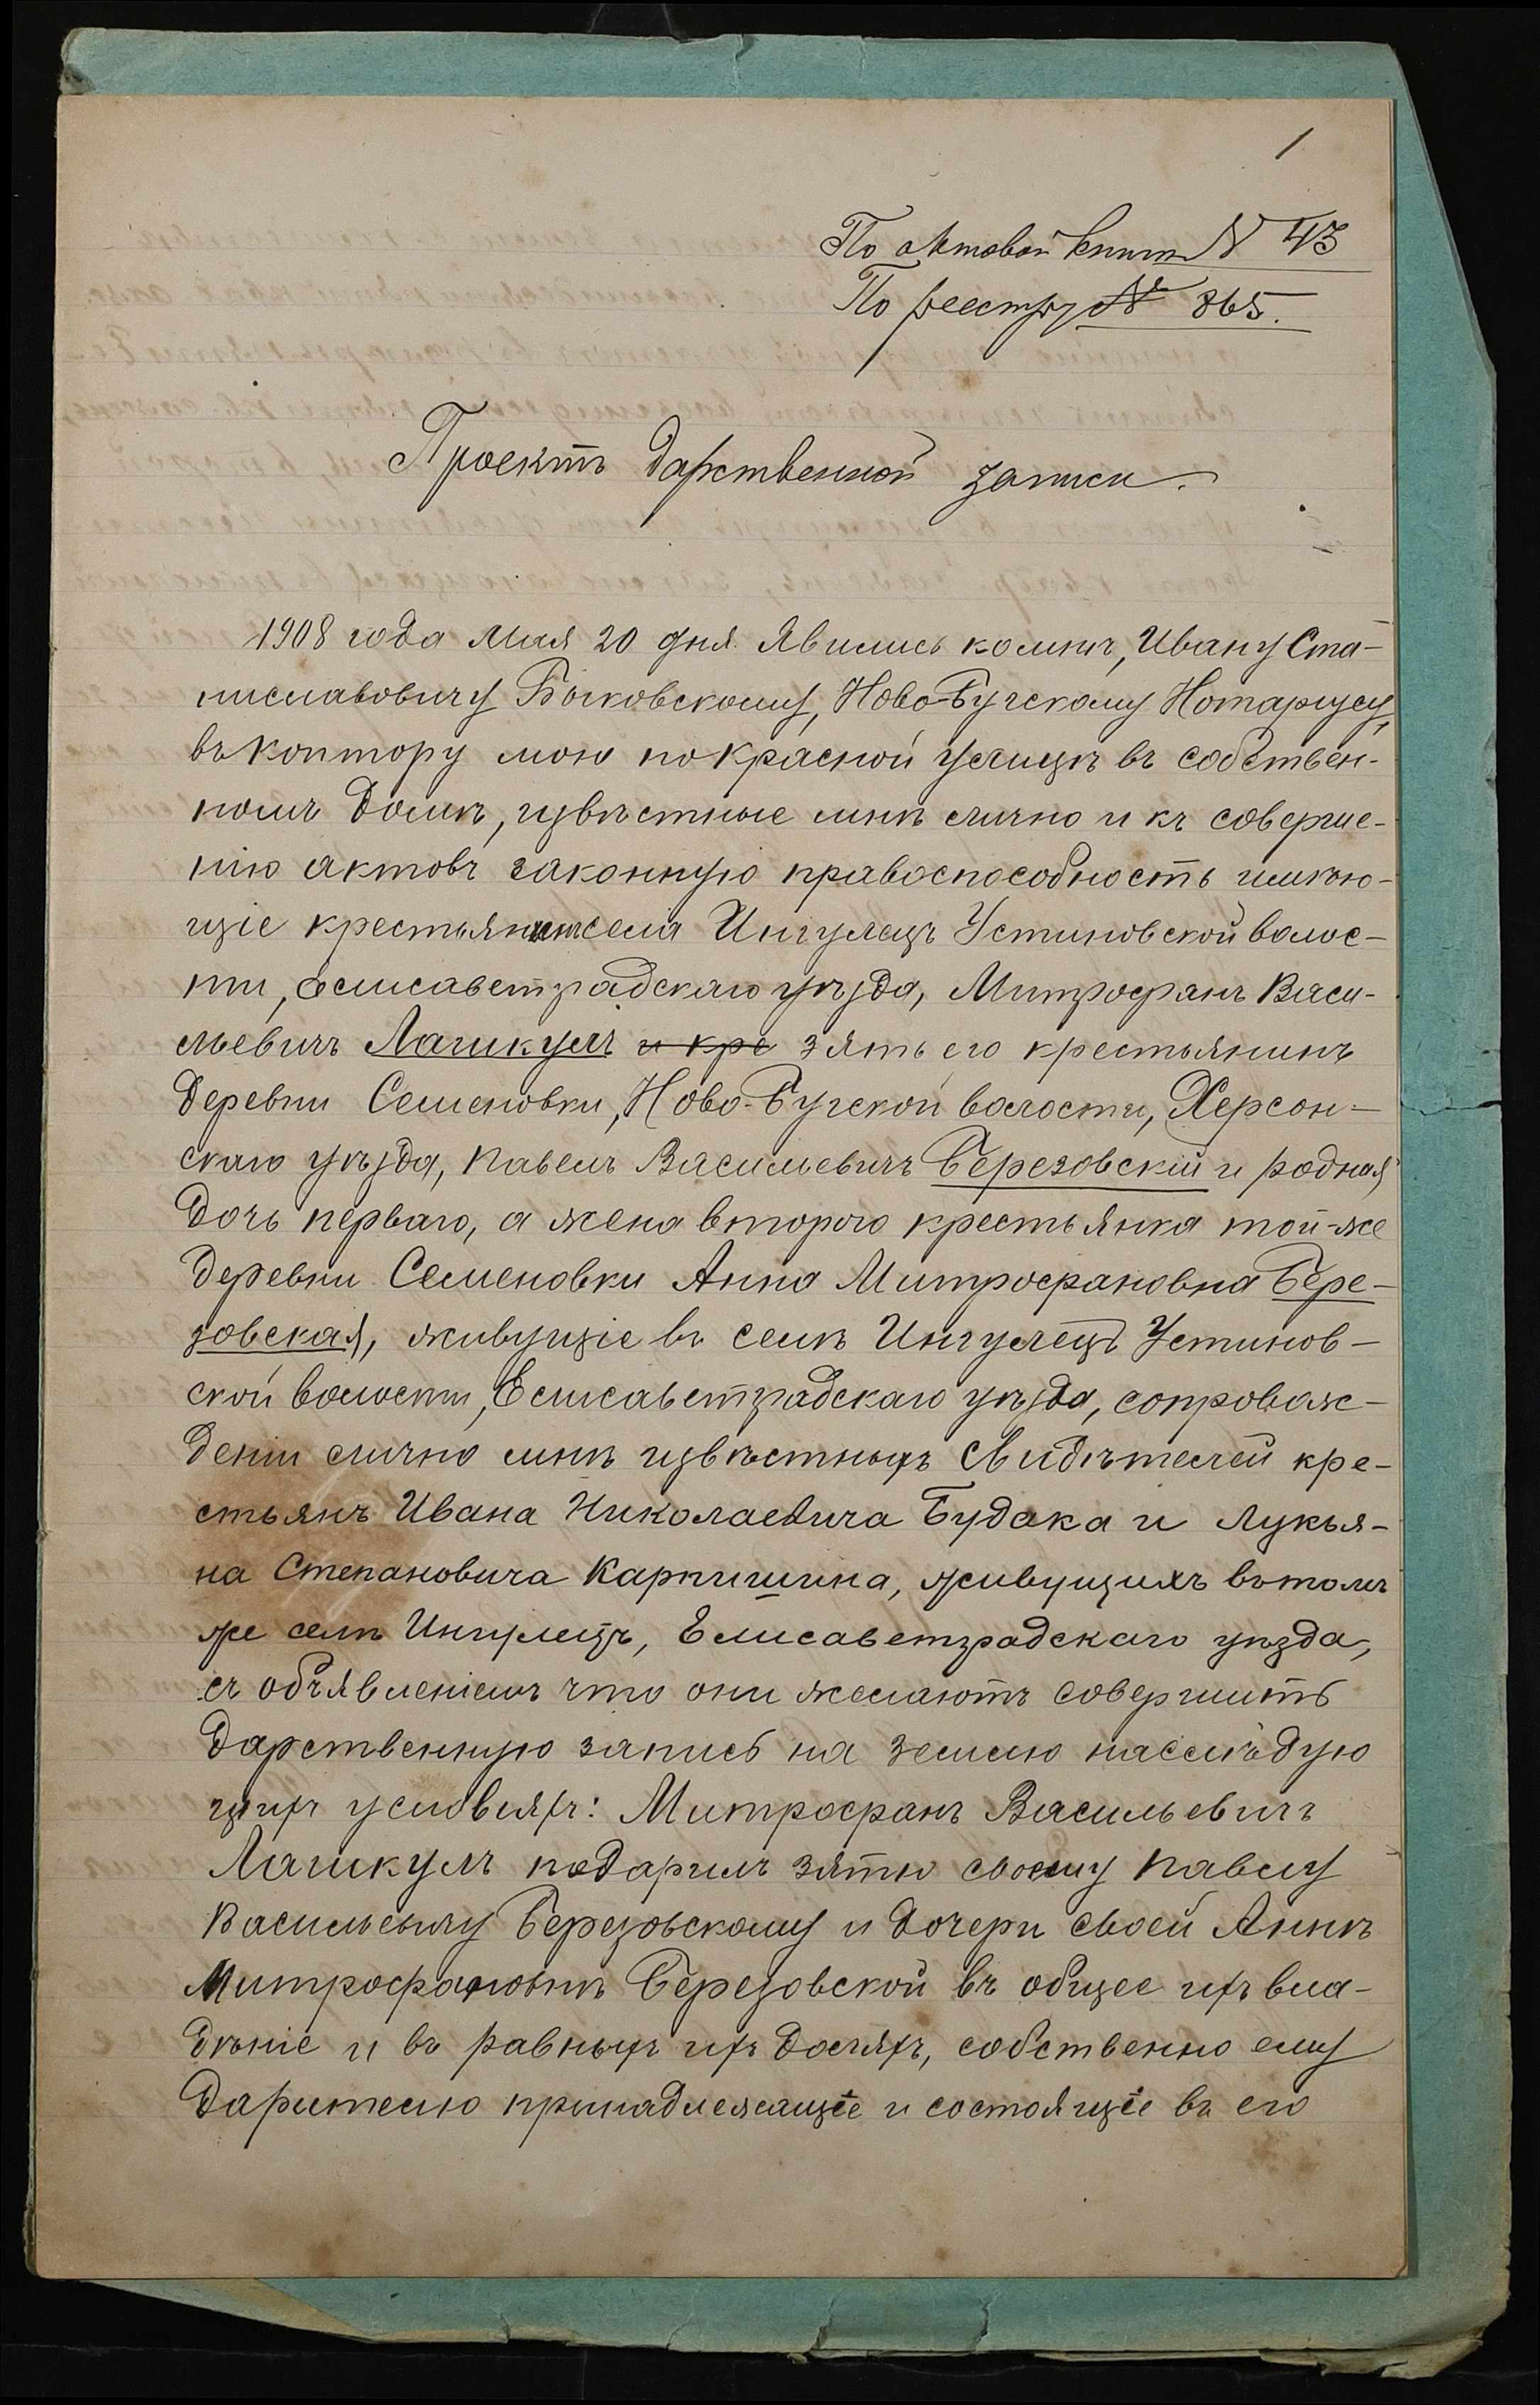 1
По актовой книгѣ № 43
По реестру № 865.
Проектъ дарственной записи.
1908 года Мая 20 дня явились ко мнѣ, Ивану Ста-
ниславовичу Бычковскому, Ново-Бугскому Нотаріусу,
въ контору мою по Красной улицѣ въ собствен-
номъ домѣ, извѣстные мнѣ лично и къ соверше-
нію актовъ законную правоспособность имѣю-
щіе крестьянинъ села Ингулецъ Устиновской волос-
ти, Елисаветградскаго уѣзда, Митрофанъ Васи-
льевичъ Лашкулъ и кре зять его крестьянинъ
деревни Семеновки, Ново-Бугской волости, Херсон-
скаго уѣзда, Павелъ Васильевичъ Березовскій и родная
дочь перваго, а жена второго крестьянка той-же
деревни Семеновки Анна Митрофановна Бере-
зовская, живущіе въ селѣ Ингулецъ Устинов-
ской волости, Елисаветградскаго уѣзда, сопровож-
деніи лично мнѣ извѣстныхъ свидѣтелей кре-
стьянъ Ивана Николаевича Будака и Лукья-
на Степановича Карпишина, живущихъ въ томъ
же селѣ Ингулецъ, Елисаветградскаго уѣзда,
съ объявленіемъ что они желаютъ совершить
дарственную запись на землю на слѣдую
щихъ условіяхъ: Митрофанъ Васильевичъ
Лашкулъ подарилъ зятю своему Павлу
Васильевичу Березовскому и дочери своей Аннѣ
Митрофановнѣ Березовской въ общее ихъ вла-
дѣніе и въ равныхъ ихъ доляхъ, собственно ему
дарителю принадлежащіе и состоящіе въ его